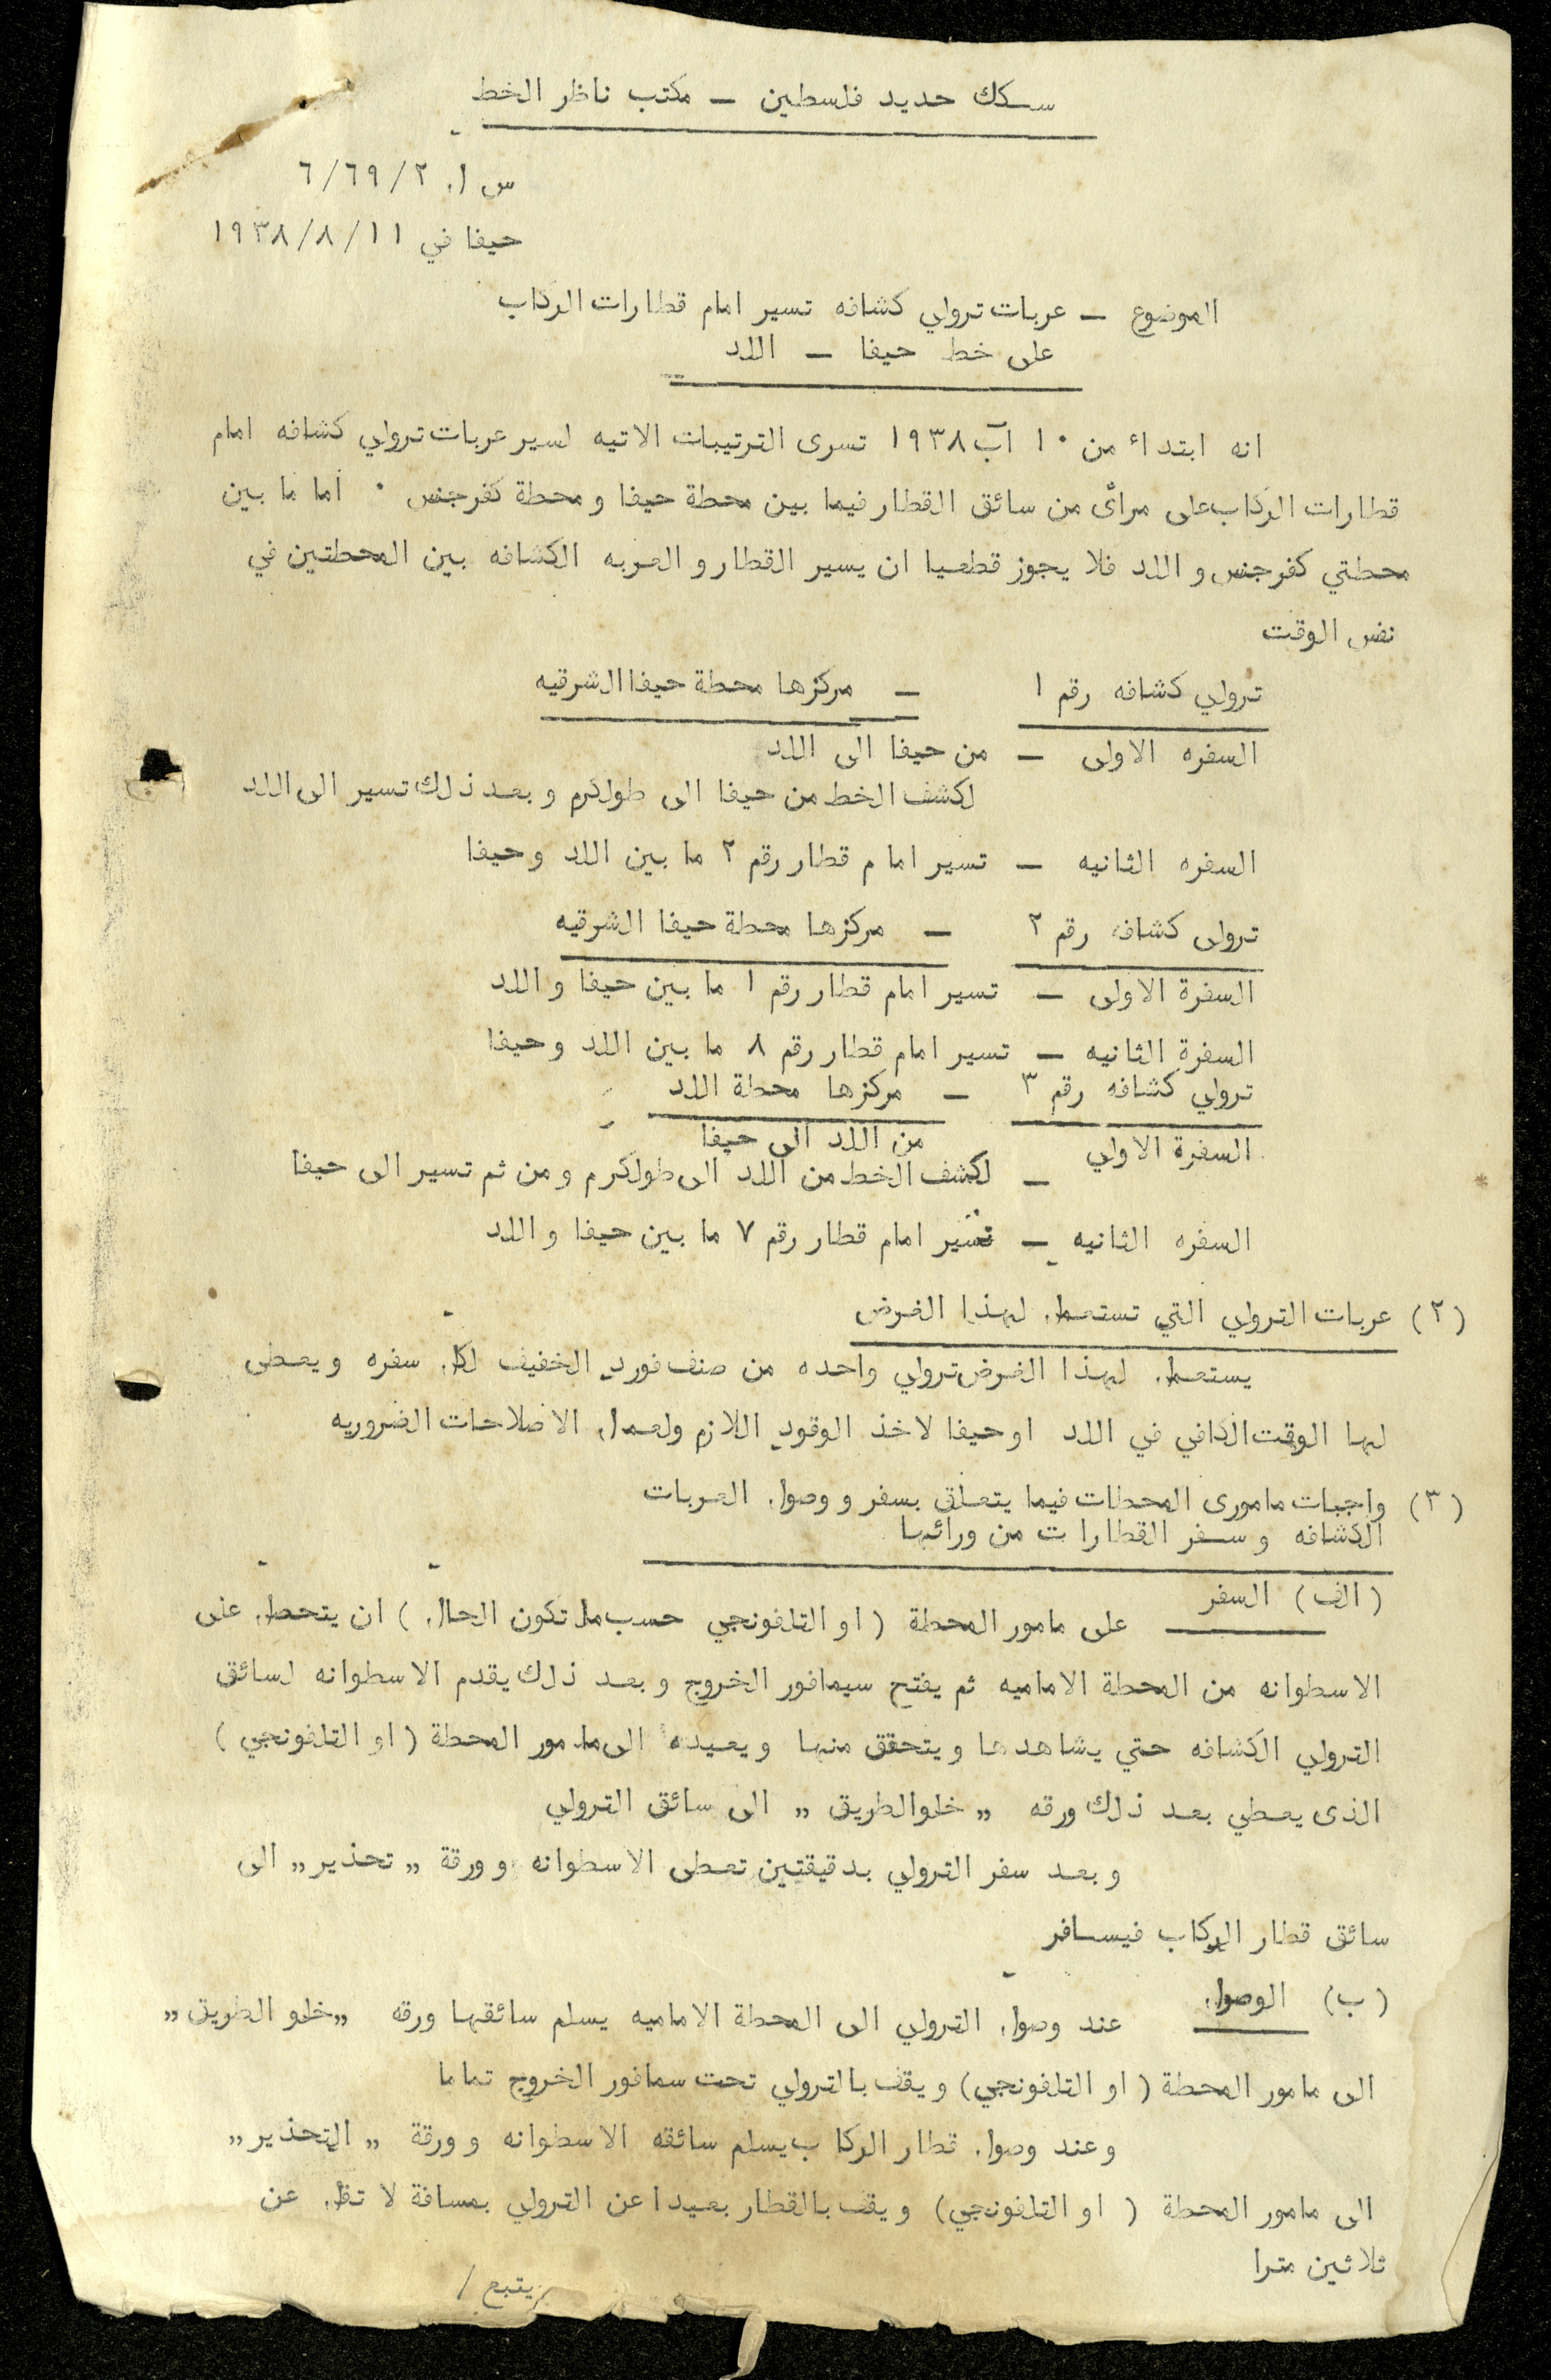 سكك حديد فلسطين – مكتب ناظر الخط
س ا. ٦/٦٩/٢
حيفا في ١٩٣٨/٨/١١
الموضوع – عربات ترولي كشافه تسير امام قطارات الركاب
على خط حيفا – اللد
انه ابتداء من ١٠ آب ١٩٣٨ تسرى الترتيبات الاتيه لسير عربات ترولي كشافه امام
قطارات الركاب على مرأى من سائق القطار فيما بين محطة حيفا و محطة كفرجنس ٠ اما ما بين
محطتي كفرجنس و اللد فلا يجوز قطعيا ان يسير القطار و العربه الكشافه بين المحطتين في
نفس الوقت
ترولي كشافه رقم ١ – مركزها محطة حيفا الشرقيه
السفره الاولى – من حيفا الى اللد
لكشف الخط من حيفا الى طولكرم و بعد ذلك تسير الى اللد
السفره الثانيه – تسير امام قطار رقم ٢ ما بين اللد وحيفا
ترولى كشافه رقم ٢ – مركزها محطة حيفا الشرقيه
السفرة الاولى – تسير امام قطار رقم ١ ما بين حيفا و اللد
السفرة الثانيه – تسير امام قطار رقم ٨ ما بين اللد وحيفا
ترولي كشافه رقم ٣ – مركزها محطة اللد
السفرة الاولي من اللد الى حيفا
– لكشف الخط من اللد الى طولكرم و من ثم تسير الى حيفا
السفره الثانيه – تسير امام قطار رقم ٧ ما بين حيفا و اللد
(٢) عربات الترولي التي تستعمل لهذا الغرض
يستعمل لهذا الغرض ترولي واحده من صنف فورد الخفيف لكل سفره و يعطى
لها الوقت الكافي في اللد او حيفا لاخذ الوقود اللازم ولعمل الاصلاحات الضروريه
(٣) واجبات مامورى المحطات فيما يتعلق بسفر و وصول العربات
الكشافه و سفر القطارات من ورائها
(الف) السفر
على مامور المحطة (او التلفونجي حسب ما تكون الحال) ان يتحصل على
الاسطوانه من المحطة الاماميه ثم يفتح سيمافور الخروج و بعد ذلك يقدم الاسطوانه لسائق
الترولي الكشافه حتي يشاهدها و يتحقق منها و يعيده الى مامور المحطة (او التلفونجي)
الذى يعطي بعد ذلك ورقه „ خلو الطريق „ الى سائق الترولي
و بعد سفر الترولي بدقيقتين تعطى الاسطوانه و ورقة „ تحذير „ الى
سائق قطار الركاب فيسافر
(ب) الوصول
عند وصول الترولي الى المحطة الاماميه يسلم سائقها ورقه „خلو الطريق„
الى مامور المحطة (او التلفونجي) و يقف بالترولي تحت سمافور الخروج تماما
و عند وصول قطار الركاب يسلم سائقه الاسطوانه و ورقة „ التحذير „
الى مامور المحطة ( او التلفونجي) و يقف بالقطار بعيدا عن الترولي بمسافة لا تقل عن
ثلاثين مترا
يتبع /